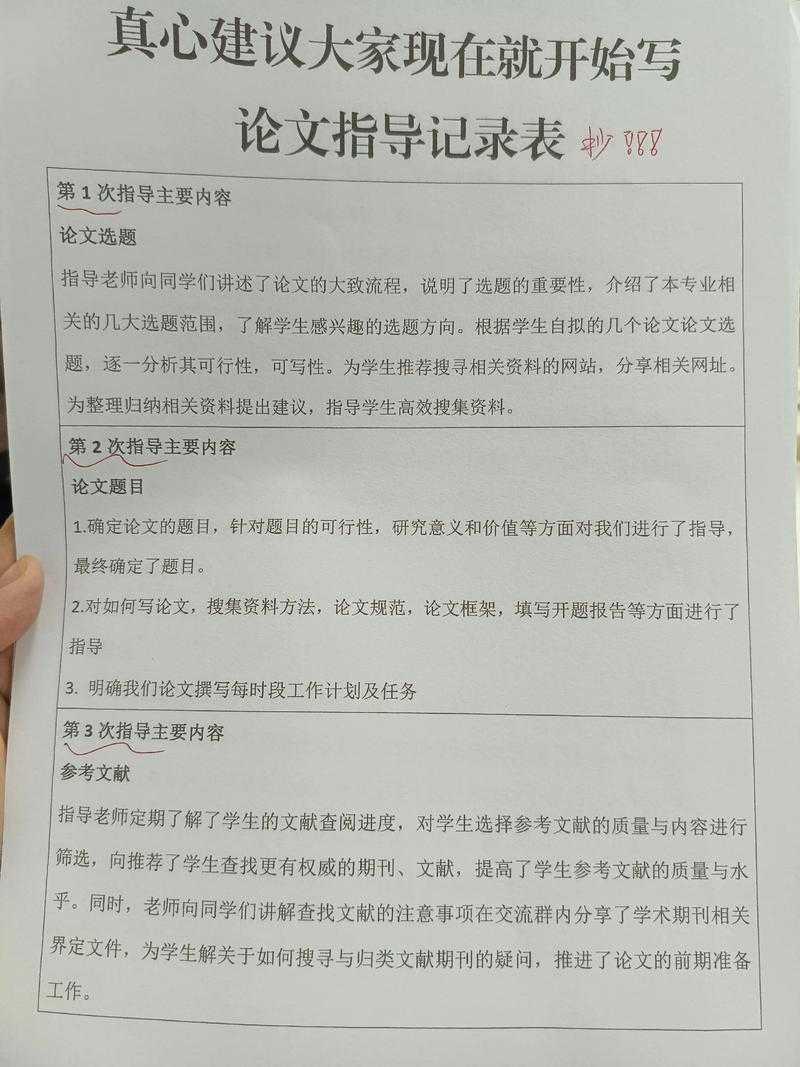 真心建议大家现在就开始写
论文指导记录表 抄!!!
第1次指导主要内容
论文选题
指导老师向同学们讲述了论文的大致流程，说明了选题的重要性，介绍了本专业相
关的几大选题范围，了解学生感兴趣的选题方向。根据学生自拟的几个论文论文选
题，逐一分析其可行性，可写性。为学生推荐搜寻相关资料的网站，分享相关网址。
为整理归纳相关资料提出建议，指导学生高效搜集资料。
第2次指导主要内容
论文题目
1.确定论文的题目，针对题目的可行性，研究意义和价值等方面对我们进行了指导，
最终确定了题目。
2.对如何写论文，搜集资料方法，论文规范，论文框架，填写开题报告等方面进行了
指导
3. 明确我们论文撰写每时段工作计划及任务
第3次指导主要内容
参考文献
指导老师定期了解了学生的文献查阅进度，对学生选择参考文献的质量与内容进行
筛选，向推荐了学生查找更有权威的期刊、文献，提高了学生参考文献的质量与水
乎。同时，老师向同学们讲解查找文献的注意事项在交流群内分享了学术期刊相关
界定文件，为学生解关于如何搜寻与归类文献期刊的疑问，推进了论文的前期准备
工作。